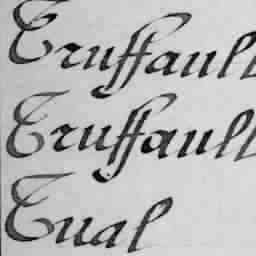 Truffault
Truffault
Tual